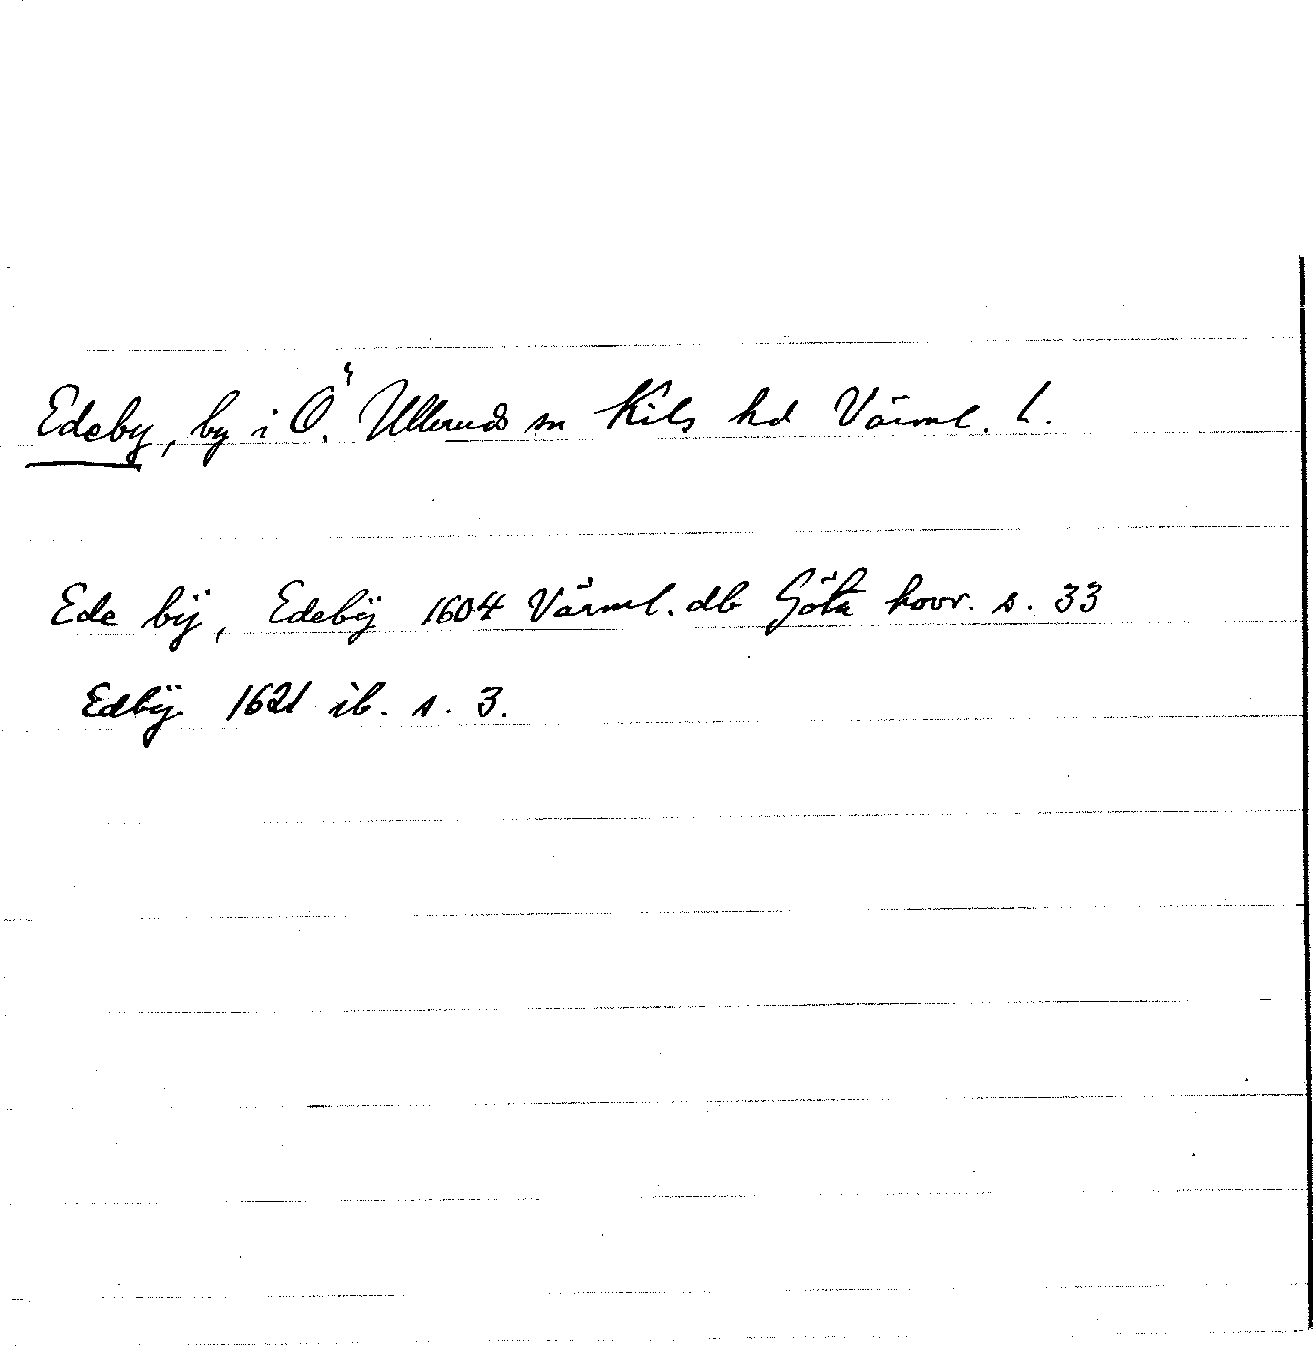 Edeby, by i Ö. Ulleruds sn Kils hd Värml. l.
Ede bÿ, Edebÿ 1604 Värml. db Göta hovr. s. 33
Edbÿ 1621 ib. s. 3.